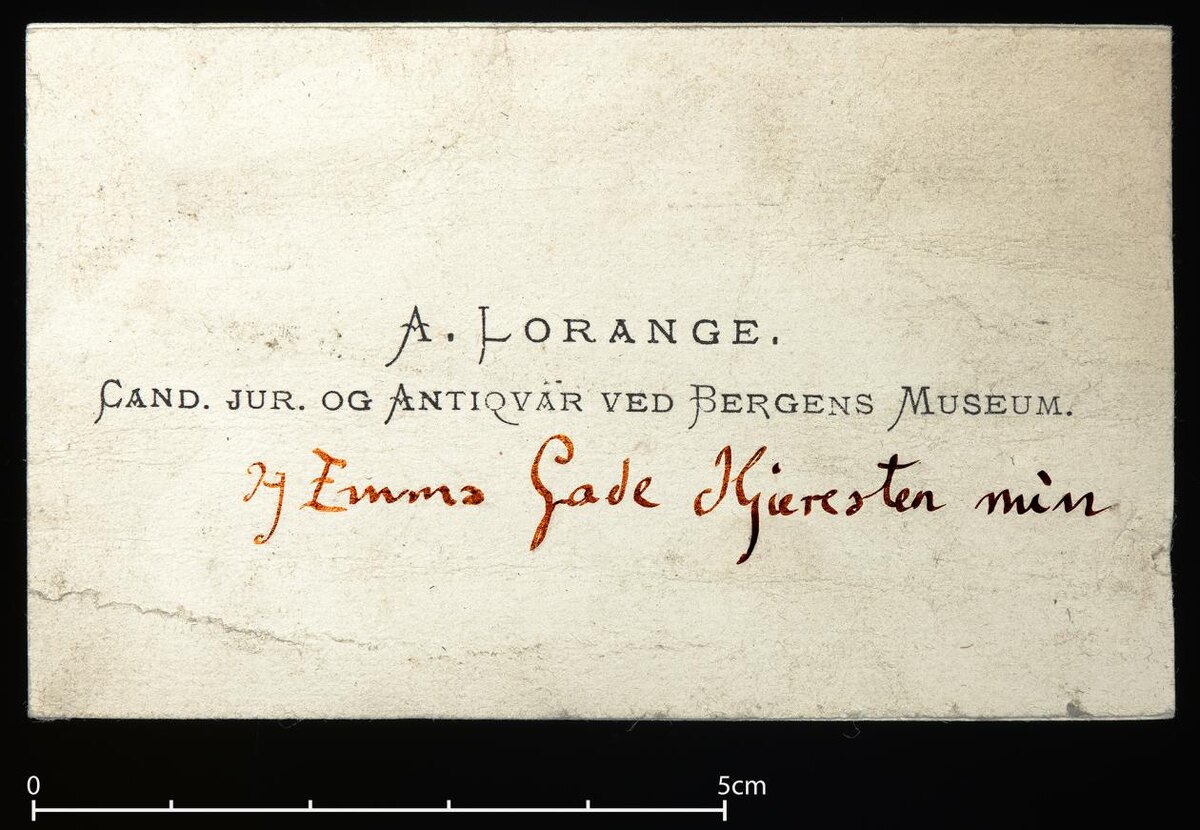 A. LORANGE.
CAND. JUR. OG ANTIQVÄR VED BERGENS MUSEUM.
Emma Gade Kjæresten min
0 5cm